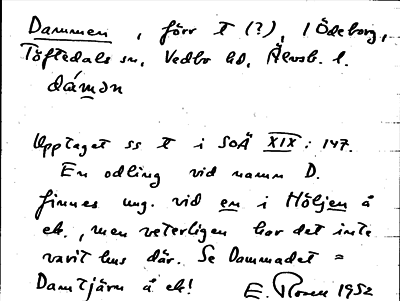 Dammen, förr t (?), i Ödeborg,
Töftedals sn, Vedbo hd, Älvsb. l.
dám̲ən
Upptaget ss t i SOÄ XIX: 147.
En odling vid namn D.
finnes ung. vid en i Höljen å
ek., men veterligen har det inte
varit hus där. Se Dammadet =
Damtjärn å ek! E. Rosen 1952